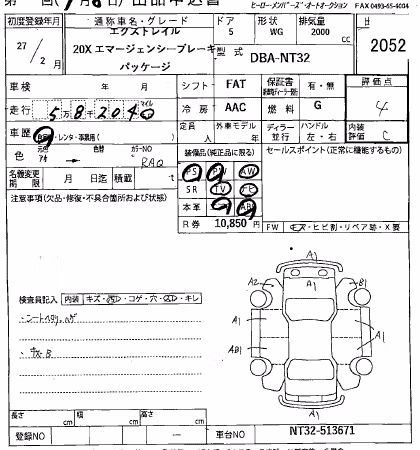 ヒーローメンバーズ・オートオークション FAX 0493-65-4004
初度登録年月 通称車名・グレード ドア 形状 排気量
27/2 エクストレイル 5 WG 2000 cc
20X エマージェンシーブレーキ 2052
パッケージ 型式 DBA-NT32
車検 年 月 シフト FAT 保証書 有・無 評価点
走行 5万8千204 マイル 冷房 AAC 燃料 G 4
車歴 レンタ・事業用 定員 人 外車モデル 年 ディーラー 並行 ハンドル 左・右 内装評価 C
色 元色 色替 カラーNO 装備品(純正品に限る) セールスポイント(正常に機能するもの)
RAQ
名義変更期限 月 日迄 積載 t
PS PW AW
SR TV ナビ
本革 AB
注意事項(欠品・修復・不具合箇所および状態) R券 10,850円
FW キズ・ヒビ割・リペア跡・X要
検査員記入 内装 キズ・コゲ・穴・キレ
A1
A2 B1
A1 A1
AB1 A1
A1
長さ cm 幅 cm 高さ cm
登録NO 車台NO NT32-513671